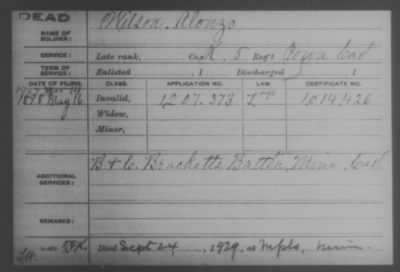 DEAD
NAME OF SOLDIER:
Wilson, Alonzo
SERVICE:
Late rank, Co. K, 5 Reg't Iowa Cav
TERM OF SERVICE:
Enlisted , 1 Discharged , 1
DATE OF FILING. CLASS. APPLICATION NO. LAW. CERTIFICATE NO.
1898 May 16 Invalid, 1207.373 1,014,426
Widow,
Minor,
ADDITIONAL SERVICES:
B + C. Bracketts Battn, Minn. Cav.
REMARKS:
Died Sept 24, 1929, at Mpls, Minn.